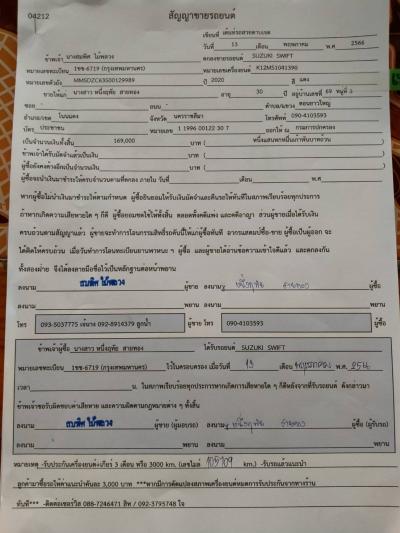 04212
สัญญาขายรถยนต์
เขียนที่ เต็นท์รถสวยตาบเขต
วันที่ 13 เดือน พฤษภาคม พ.ศ 2566
ข้าพเจ้า นางสมพิศ ไม้พลวง ตกลงขายรถยนต์ SUZUKI SWIFT
หมายเลขทะเบียน 1ขช-6719 (กรุงเทพมหานคร) หมายเลขเครื่องยนต์ K12MS1041390
หมายเลขตัวถัง MMSDZC63S00129989 ปี 2020 สี แดง
ขายให้แก่ นางสาว หนึ่งฤทัย สายทอง อายุ 30 ปี อยู่บ้านเลขที่ 69 หมู่ที่ 3
ซอย - ถนน - ตำบล/แขวง ดอนยาวใหญ่
อำเภอ/เขต โนนแดง จังหวัด นครราชสีมา โทรศัพท์ 090-4103593
บัตร ประชาชน หมายเลข 1 1996 00122 30 7 ออกให้ ณ กรมการปกครอง
เป็นจำนวนเงินทั้งสิ้น 169,000 บาท (หนึ่งแสนหกหมื่นเก้าพันบาทถ้วน)
ข้าพเจ้าได้รับมัดจำแล้วเป็นเงิน บาท
ผู้ซื้อยังคงค้างอีกเป็นจำนวนเงิน บาท
ผู้ซื้อจะนำเงินมาชำระให้ครบจำนวนตามที่ตกลง ภายใน วันที่ เดือน พ.ศ
หากผู้ซื้อไม่นำเงินมาชำระให้ตามกำหนด ผู้ซื้อยินยอมให้ริบเงินมัดจำและคืนรถให้ทันทีในสภาพเรียบร้อยทุกประการ
ถ้าหากเกิดความเสียหายใด ๆ ก็ดี ผู้ซื้อยอมชดใช้ให้ทั้งสิ้น ตลอดทั้งคดีแพ่ง และคดีอาญา ส่วนผู้ขายเมื่อได้รับเงิน
ครบถ้วนตามสัญญาแล้ว ผู้ขายจะทำการโอนกรรมสิทธิ์รถคันนี้ให้แก่ผู้ซื้อทันที อากรแสตมป์ซื้อ-ขาย ผู้ซื้อเป็นผู้ออก จะ
ได้ติดให้ครบถ้วน เมื่อวันทำการโอนทะเบียนยานพาหนะ ๆ ผู้ซื้อ และผู้ขายได้อ่านข้อความเข้าใจดีแล้ว และตกลงกัน
ทั้งสองฝ่าย จึงได้ลงลายมือชื่อไว้เป็นหลักฐานต่อหน้าพยาน
ลงนาม สมพิศ ไม้พลวง ผู้ขาย ลงนาม หนึ่งฤทัย สายทอง ผู้ซื้อ
ลงนาม พยาน ลงนาม พยาน
โทร 093-5037775 เจ๊นาง 092-8914379 ลูกน้ำ ผู้ขาย โทร 090-4103593 ผู้ซื้อ
ข้าพเจ้าผู้ซื้อ นางสาว หนึ่งฤทัย สายทอง ได้รับรถยนต์ SUZUKI SWIFT
หมายเลขทะเบียน 1ขช-6719 (กรุงเทพมหานคร) ไว้ในครอบครอง เมื่อวันที่ 13 เดือน พฤษภาคม พ.ศ.
เวลา น. ในสภาพเรียบร้อยทุกประการหากเกิดการเสียหายใด ๆ ก็ดีหลังจากที่รับรถยนต์ ดังกล่าวมา
ข้าพเจ้าขอรับผิดชอบค่าเสียหาย และความผิดตามกฎหมายต่าง ๆ ทั้งสิ้น
ลงนาม สมพิศ ไม้พลวง ผู้ขาย (ผู้มอบรถ) ลงนาม หนึ่งฤทัย สายทอง ผู้ซื้อ (ผู้รับรถ)
ลงนาม พยาน ลงนาม พยาน
หมายเหตุ -รับประกันเครื่องยนต์+เกียร์ 3 เดือน หรือ 3000 km. (เลขไมล์ 105709 km.) -รับรถแล้วแนะนำ
ลูกค้ามาซื้อรถให้ค่าแนะนำคันละ 3,000 บาท ***หากมีการดัดแปลงสภาพเครื่องยนต์หมดการรับประกันจากทางร้าน
ทันที*** -ติดต่อเซอร์วิส 088-7246471 สิห / 092-3795748 ใจ